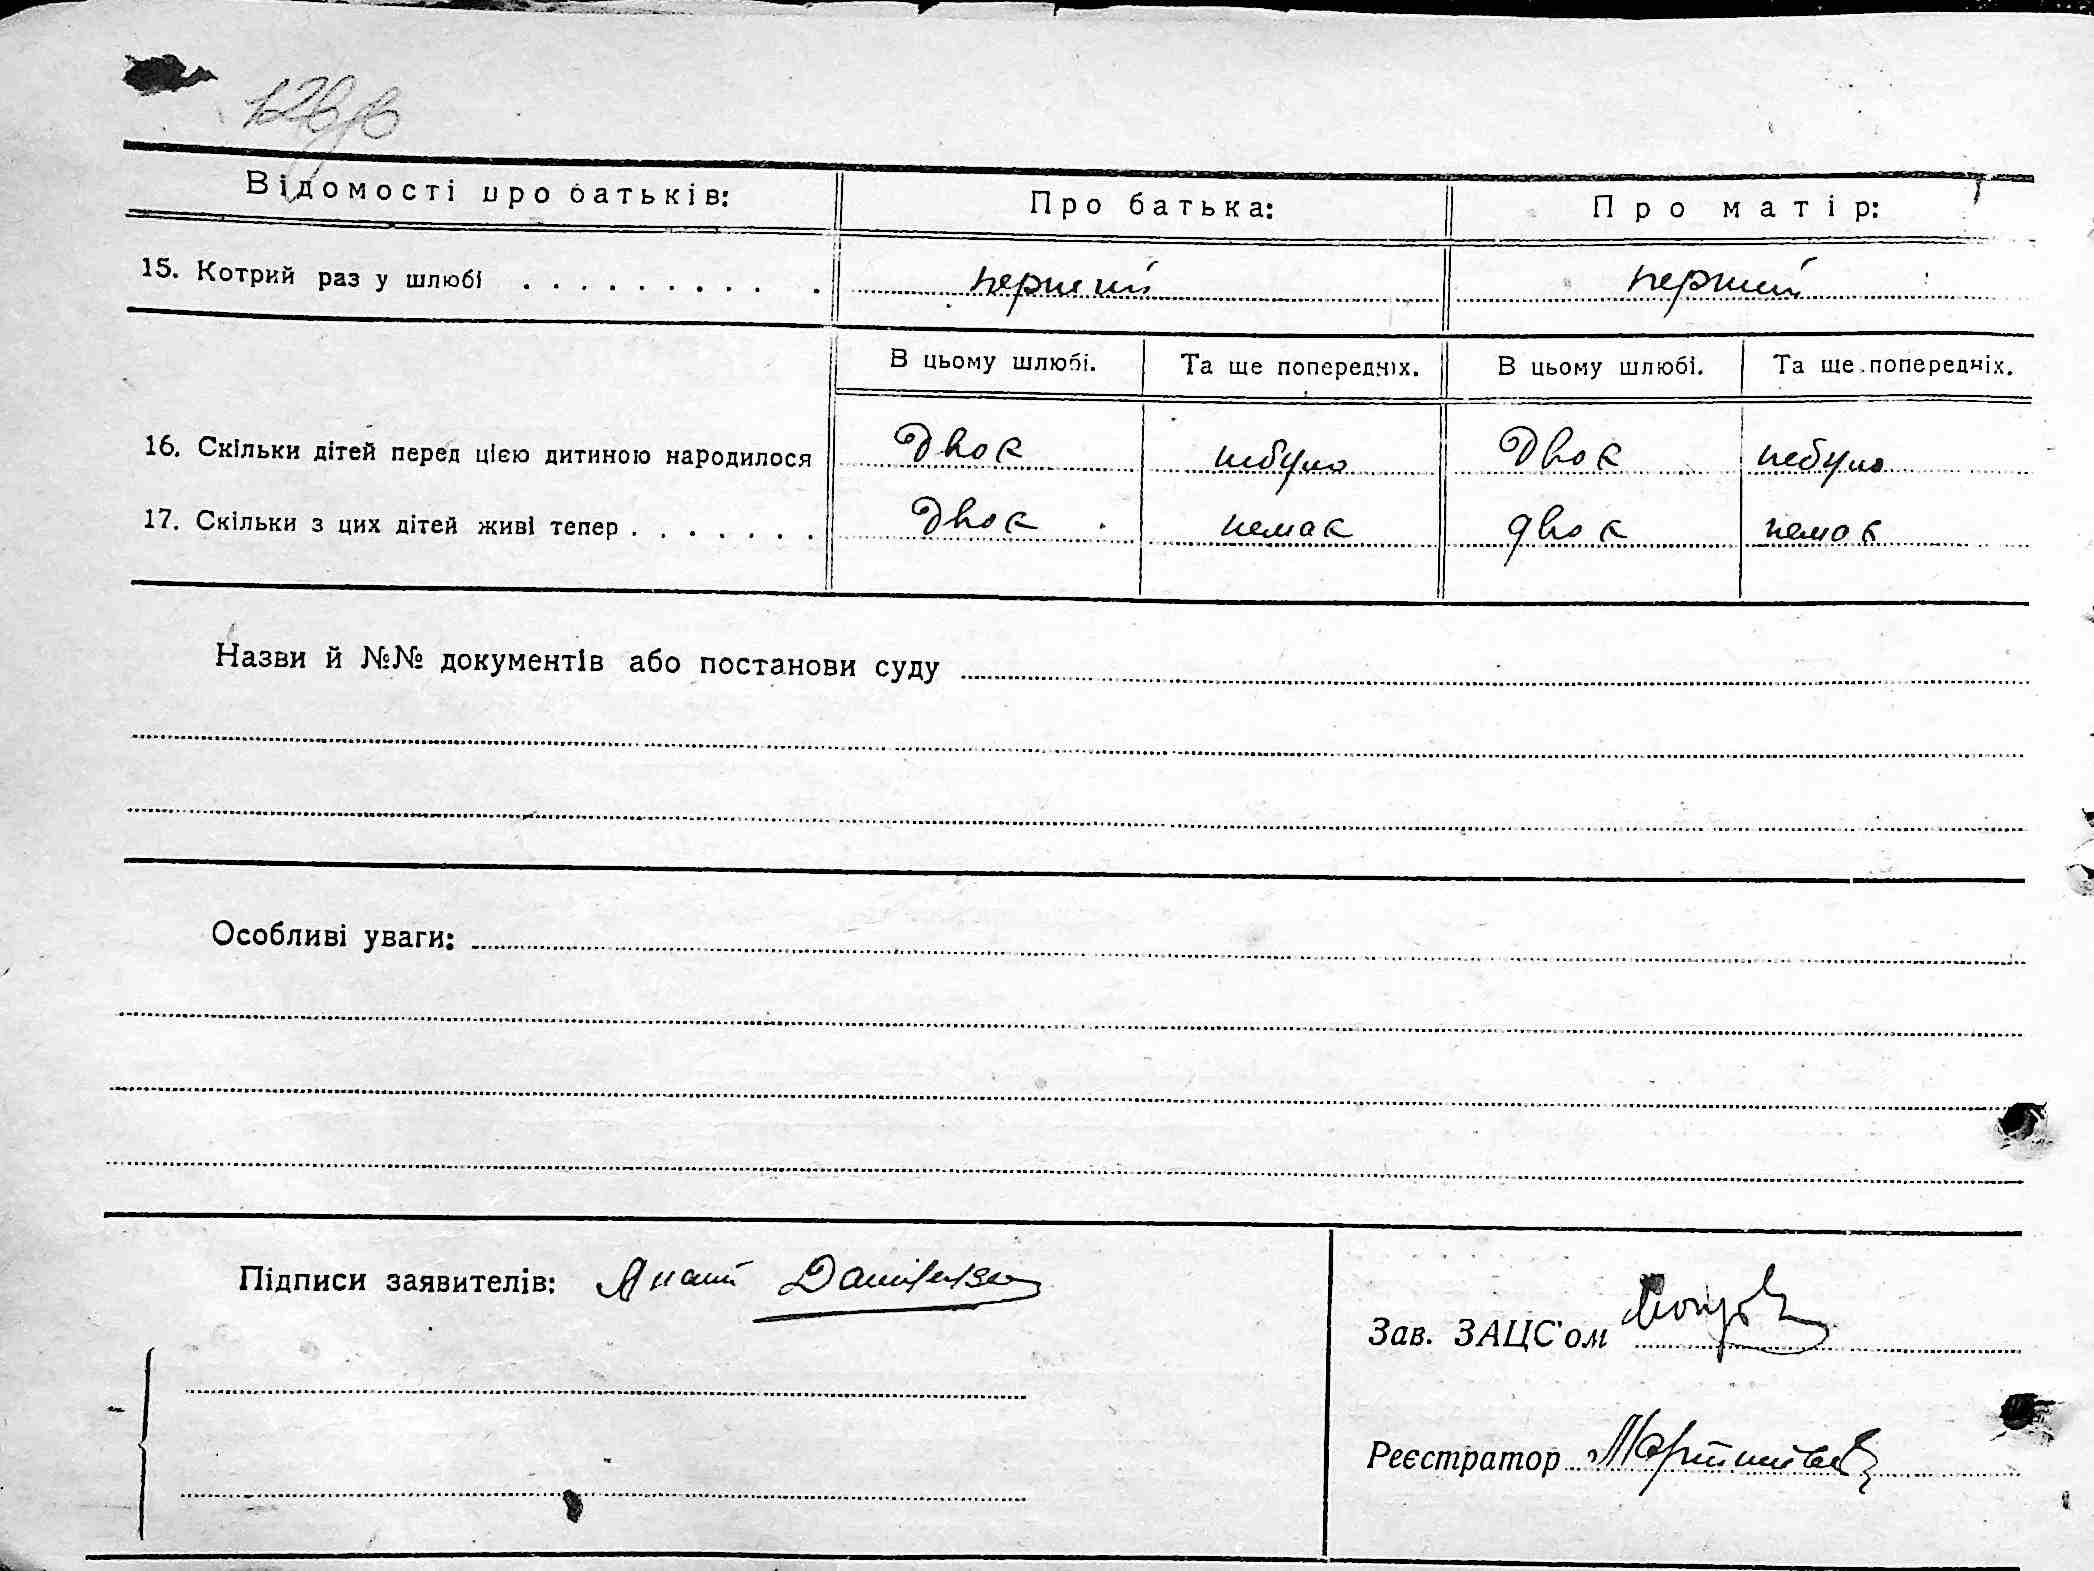 Відомості про батьків: Про батька: Про матір:
15. Котрий раз у шлюбі . . . . . . . . . . . перший перший
В цьому шлюбі. Та ще попередніх. В цьому шлюбі. Та ще попередніх.
16. Скільки дітей перед цією дитиною народилося двоє небуло двоє небуло
17. Скільки з цих дітей живі тепер . . . . . . . двоє немає двоє немає
Назви й №№ документів або постанови суду
Особливі уваги:
Підписи заявителів:
Зав. ЗАЦС'ом
Реєстратор